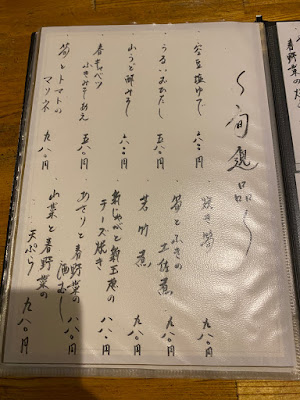 〜旬選品〜
空豆塩ゆで 六〇〇円
うるいおひたし 五八〇円
山うど酢みそ 六〇〇円
春キャベツ
ふきみそあえ 五八〇円
筍とトマトの
マリネ 九八〇円
焼き筍 九八〇円
筍とふきの
土佐煮 九八〇円
若竹煮 九八〇円
新じゃがと新玉葱の
チーズ焼き 八八〇円
あさりと春野菜の
酒むし 八八〇円
山菜と春野菜の
天ぷら 九八〇円
春野菜の